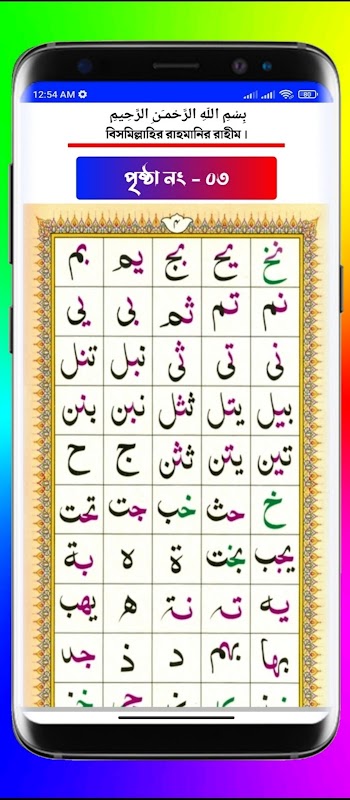 12:54 AM
80
بِسْمِ اللّٰهِ الرَّحْمٰنِ الرَّحِيمِ
বিসমিল্লাহির রাহমানির রাহীম।
পৃষ্ঠা নং - ০৩
٤
نخ يح بج يم بم
نم تم ثم بى يى
نى تى ثى نبل تنل
بيل يتل ثثل نبن بنن
تين يتن ثثن ج ح
خ حث خب جت تحت
يجب بخت ة ه بة
يه تہ نة ھ يهب
بها بهم د ذ جد